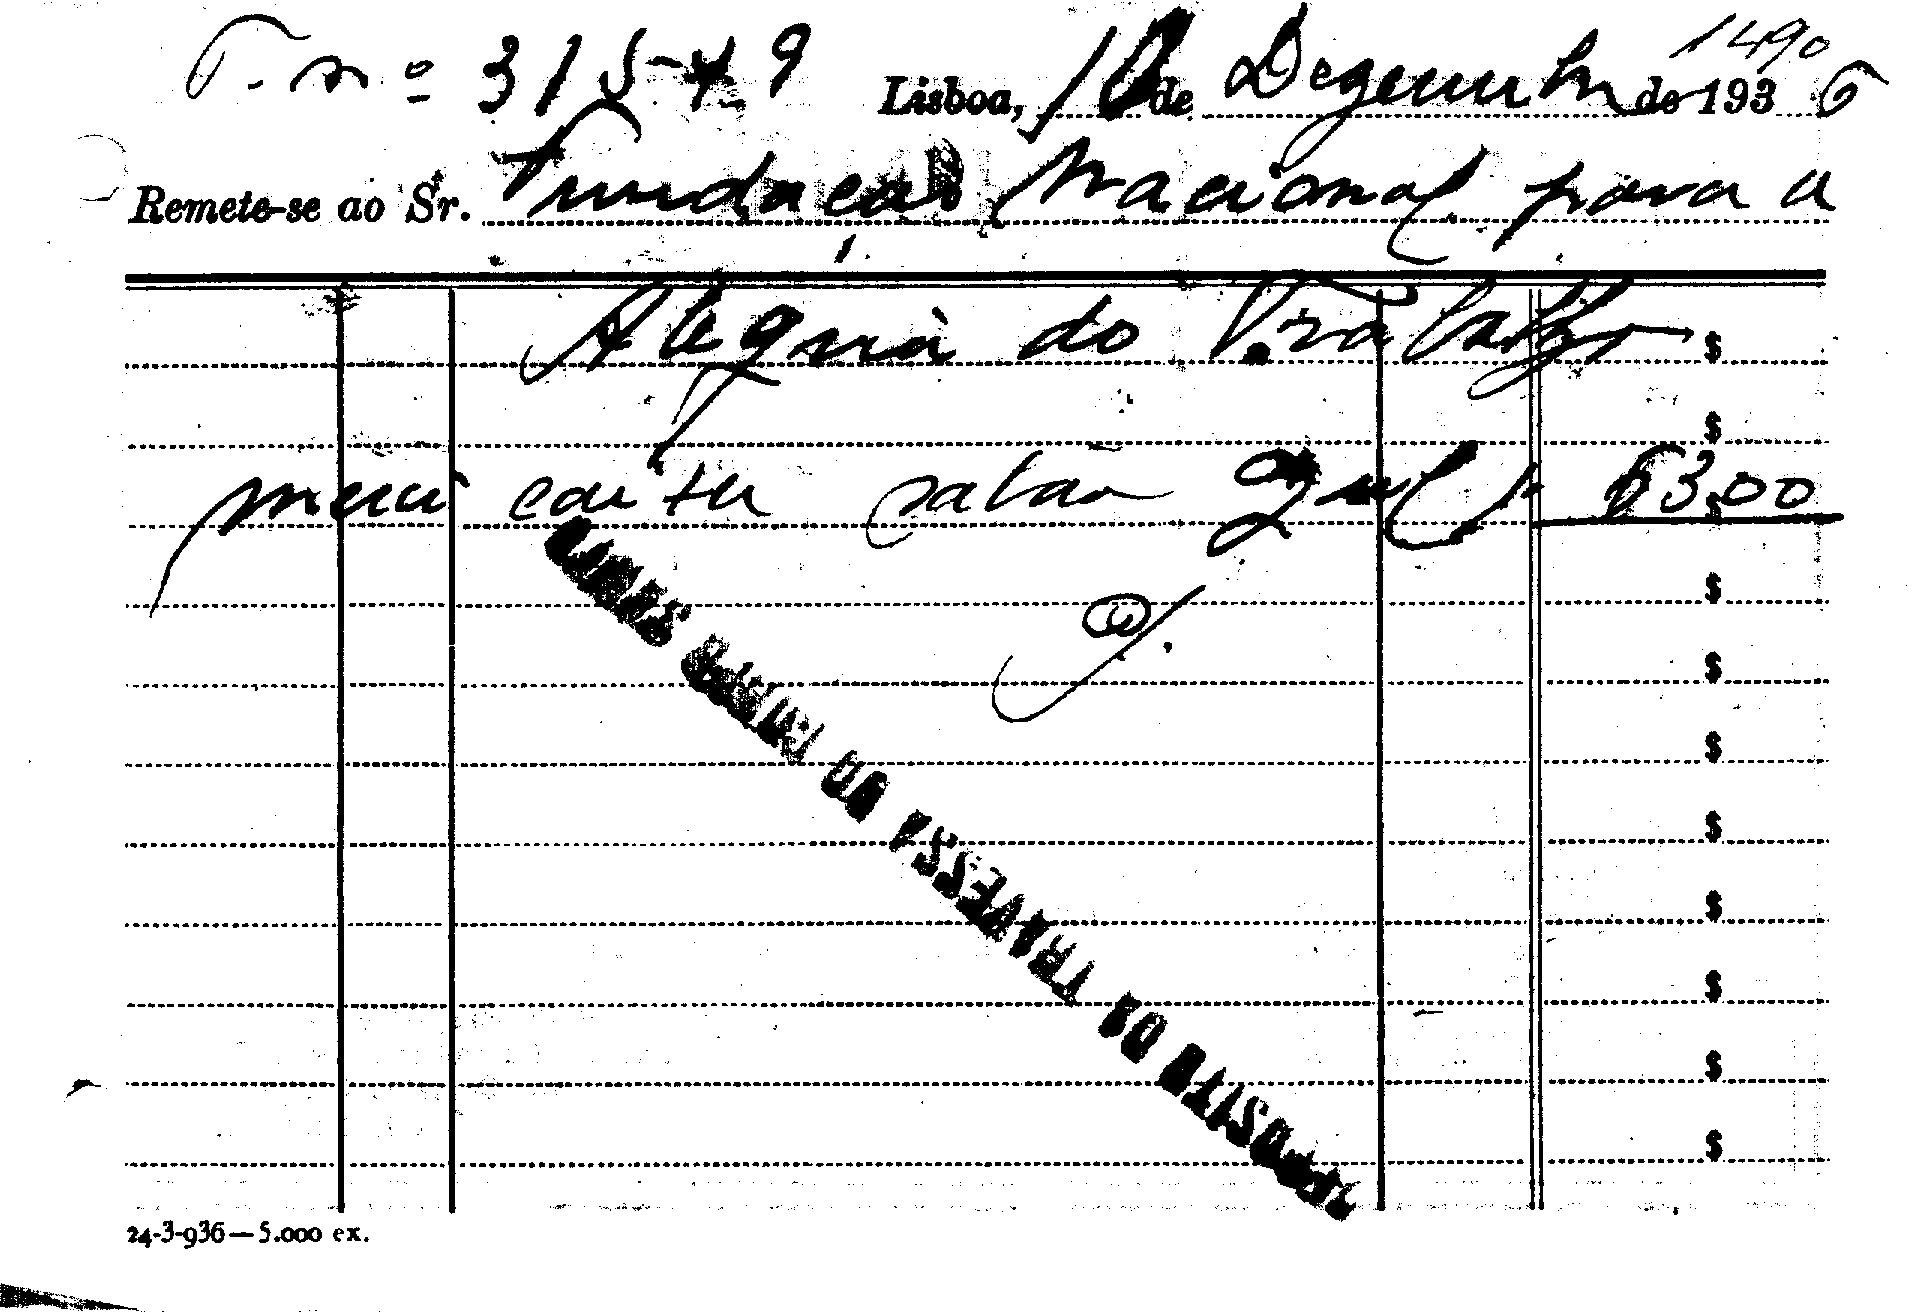 1490
T. nº 31549 Lisboa, 18 de Dezembro de 1936
Remete-se ao Sr. Fundação Nacional para a
Alegria do Trabalho $
$
meia caixa sabão 63$00
$
$
$
$
$
$
$
$
DEPOSITO DA TRAVESSA DO
24-3-936 — 5.000 ex.